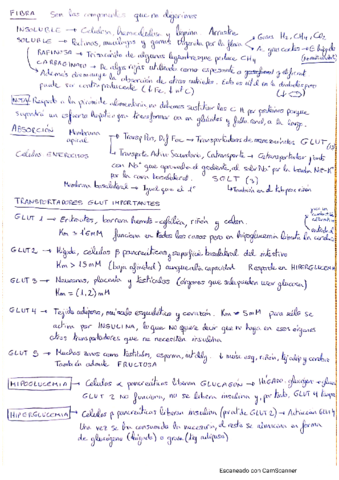 FIBRA Son los componentes que no digerimos
INSOLUBLE → Celulosa, hemicelulosa y lignina. Arrastra
SOLUBLE → Pectinas, mucílagos y gomas digerida por la flora → Gases H2, CH4, CO2
→ A. grasos cadena
RAFINOSA → Trisacárido de algunas leguminosas que produce CH4
CARRAGENANO → De algas rojas utilizado como espesante
Además disminuye la absorción de otros nutrientes. Esta es útil en la diabetes pero
puede ser contraproducente (↓Fe, ↓ol C)
NOTA Respecto a la pirámide alimentaria no debemos sustituir los CH por proteínas porque
supondría un esfuerzo hepático para transformar en glúcidos y fallo renal a la larga.
ABSORCIÓN
Membrana apical → Transp Pasivo, Dif Fac → Transportadores de monosacáridos GLUT
→ Transporte Activo Secundario, Cotransporte → Cotransportador junto
Células ENTEROCITOS con Na+ que aprovecha el gradiente, al salir Na+ por la bomba Na+-K+
por la cara basolateral. SGLT
Membrana basolateral → Igual que el 1º
TRANSPORTADORES GLUT IMPORTANTES
GLUT 1 → Eritrocitos, barrera hemato-encefálica, riñón y colon.
Km > 1mM funciona en todos los casos pero en hipoglucemia
GLUT 2 → Hígado, células β pancreáticas y superficie basolateral del intestino
Km > 15mM (baja afinidad) aunque alta capacidad Responde en HIPERGLUCEMIA
GLUT 3 → Neuronas, placenta y testículos (órganos que solo pueden usar glucosa)
Km = (1,2) mM
GLUT 4 → Tejido adiposo, músculo esquelético y corazón. Km = 5mM para ello se
activa por INSULINA, lo que NO quiere decir que no haya en esos órganos
otros transportadores que no necesitan insulina
GLUT 5 → Muchos lugares como testículos, esperma, intestino, riñón, tej adip y cerebro
También admite FRUCTOSA
HIPOGLUCEMIA → Células α pancreáticas liberan GLUCAGÓN → HÍGADO
GLUT 2 NO funciona, no se libera insulina y, por tanto, GLUT 4 tampoco
HIPERGLUCEMIA → Células β pancreáticas liberan insulina (prod. de GLUT 2) → Activan GLUT 4
Una vez se ha consumido lo necesario, el resto se almacena en forma
de glucógeno (hígado) o grasa (tej adiposo)
Escaneado con CamScanner